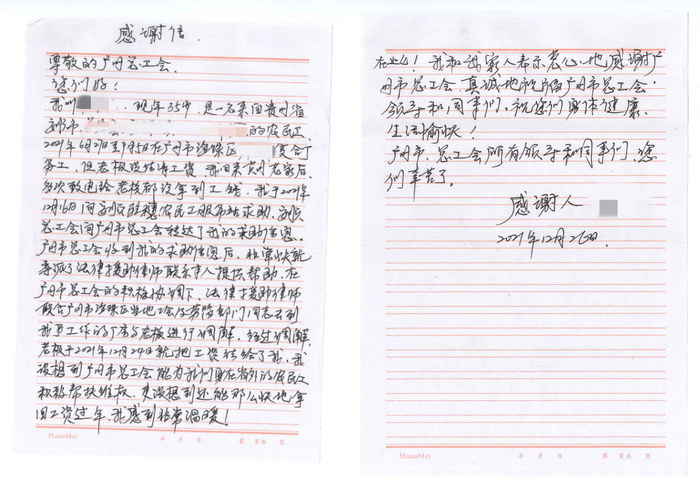 感谢信
尊敬的广州总工会
您们好!
我叫 , 现年35岁, 是一名来自贵州省
安顺市 的农民工,
2021年6月21日到9月 日在广州市海珠区 制衣厂
务工, 但老板没结清工资, 我回来贵州老家后,
多次致电给老板都没拿到工钱, 我于2021年
12月16日向 驻穗农民工服务站求助,
总工会向广州市总工会转达了我的求助信息,
广州市总工会收到我的求助信息后, 非常快就
委派了法律援助律师联系本人提供帮助, 在
广州市总工会的积极协调下, 法律援助律师
联合广州市海珠区当地工会及劳动部门同志去到
我原工作的厂帮与老板进行调解, 经过调解,
老板于2021年12月24日就把工资转给了我, 我
没想到广州市总工会能为我们身在省外的农民工
积极帮扶维权, 更没想到还能那么快地拿
回工资过年, 我感到非常温暖!
HuanMei 年 月 日 第 页 共 页
在此! 我和我家人表示衷心地感谢广
州市总工会, 真诚地祝福广州市总工会
领导和同事们, 祝您们身体健康,
生活愉快!
广州市总工会所有领导和同事们, 您
们辛苦了。
感谢人
2021年12月26日.
HuanMei 年 月 日 第 页 共 页